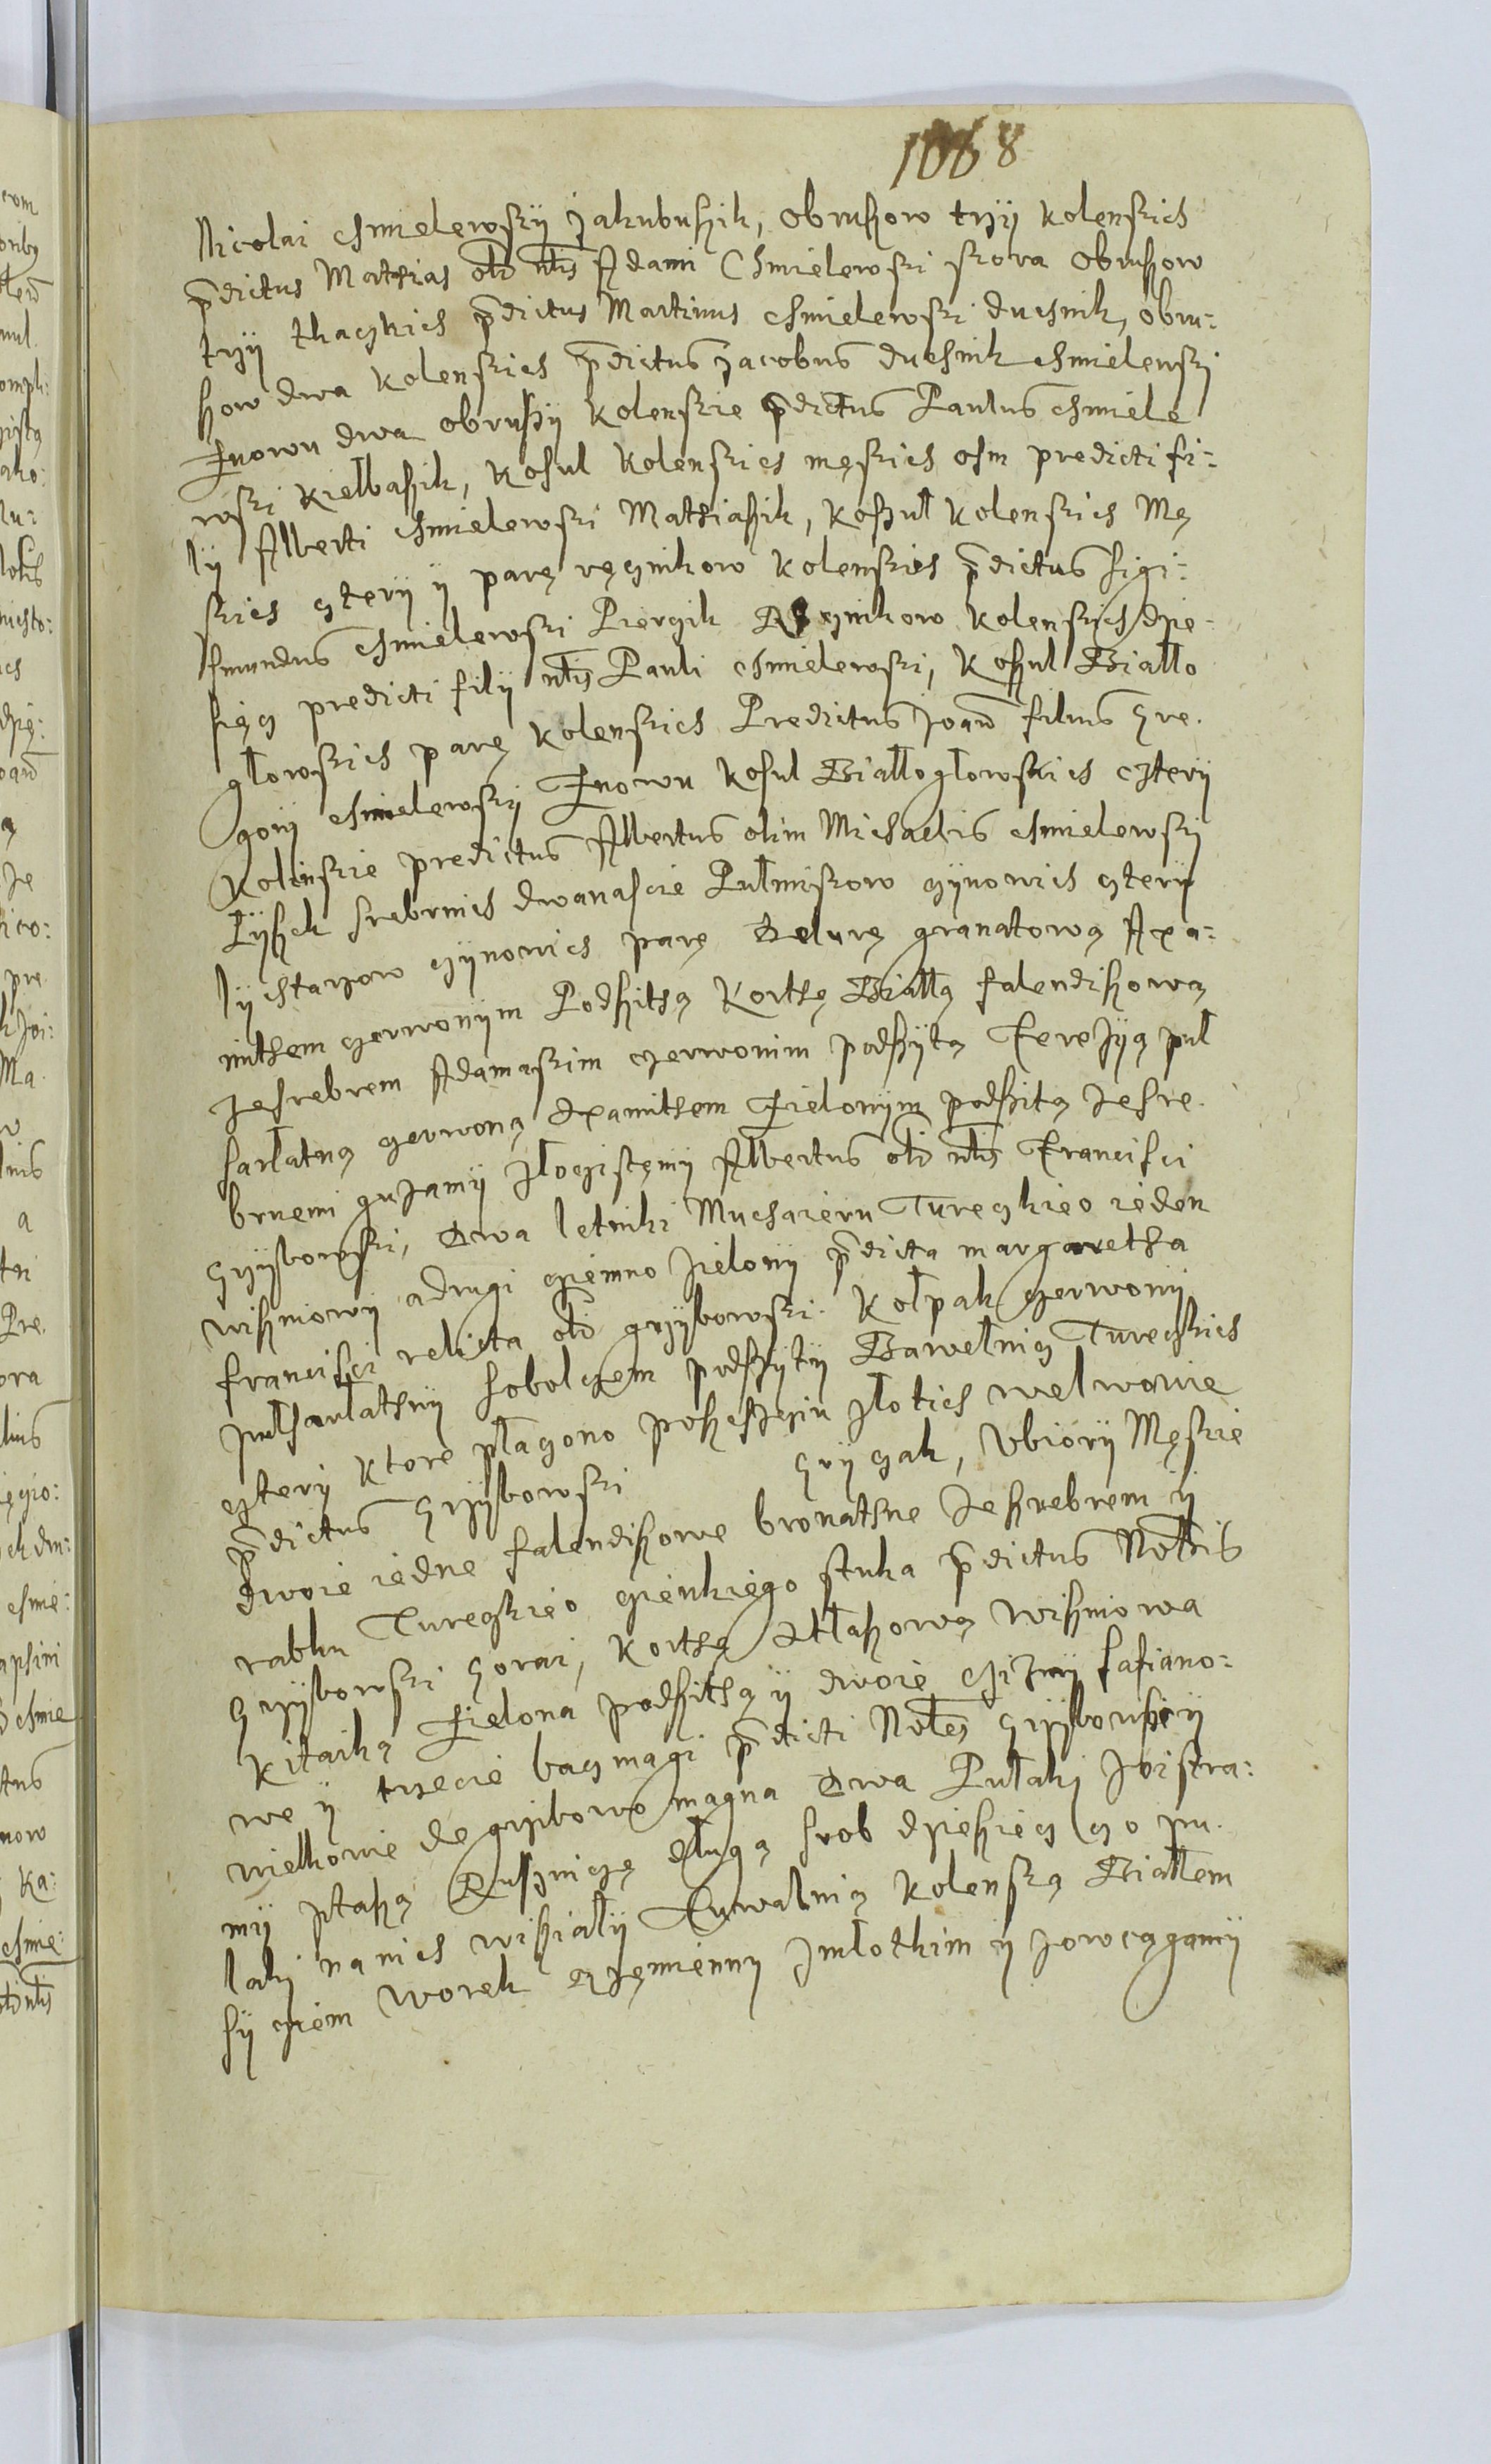 1068
Nicolai Chmielewsky Jakubusik, obrusow trzy kolenskich
p̄dictus Mathias olī nł̄is Adami Chmielewski skora obrusow
trzy thaczkich p̄dictus Martinus Chmielewski duchnik, obru:
sow dwa kolenskich p̄dictus Jacobus duchnik Chmielewski
Znowu dwa obrusy kolenskie p̄dictus Paulus Chmiele
wski kiełbasik, kosul kolenskich męskich osm predicti fi:
ly Alberti Chmielewski Mathiasik, koszuł kolenskich Mę
skich cztery y parę ręcznikow kolenskich p̄dictus Sigi:
smundus Chmielewski Pierczik Ręcznikow kolenskich dzie:
sięcz predicti filij nł̄is Pauli Chmielewski, koszul Biało
głowskich parę kolenskich Predictus Joan̄ filius Gre.
gorij Chmielewsky Znowu kosul Białogłowskich cztery
kolenskie predictus Albertus olim Michaelis Chmielewski
Łyżek srebrnich dwanascie Pułmiskow cynowich cztery
ly chtarzow czynowich parę Delurę granatową Axa:
mithem czerwonym Podszithą Kortkę Białłą falendiszową
zesrebrem Adamaskim czerwonim podszytą Ferezyą puł
sarłatną czerwoną Axamithem Zielonym podszitą zesre.
brnemi guzamy złoczistemy Albertus olī nł̄is Francisci
Grzybowski, Dwa letniki Muchaieru Tureczkieo ieden
wiszniowy adrugi cziemno zielony p̄dicta margaretha
francisci relicta olī grzybowski. Kołpak czerwony
pułsarłathny sobolczem podszyty Bawelnicz Tureczkich
cztery ktore płaczono poszescziu złotich welwowie
p̄dictus Grzybowski Gryczak, Vbiory Męskie
dwoie iedne falendiszowe bronathne ze srebrem y
rabku Tureczkieo czienkiego sztuka p̄dictus Nobłis
Grzybowski Gorai, kortkę Atłasową wiszniowa
kitaiką Zielona podszithą y dwoie czizmy safiano:
we y trzecie baczmagi p̄dicti Nobłes Grzybowskiy
wielkowie de grzibowo magna Dwa Pułaki zoistra:
my ptaką Rusznicę długą srob dziesięcz czo pu.
laki nanich wisiały Tuwalnią kolenską Białłem
sy ciem worek rzemienny zmłotkim y zowczągamy